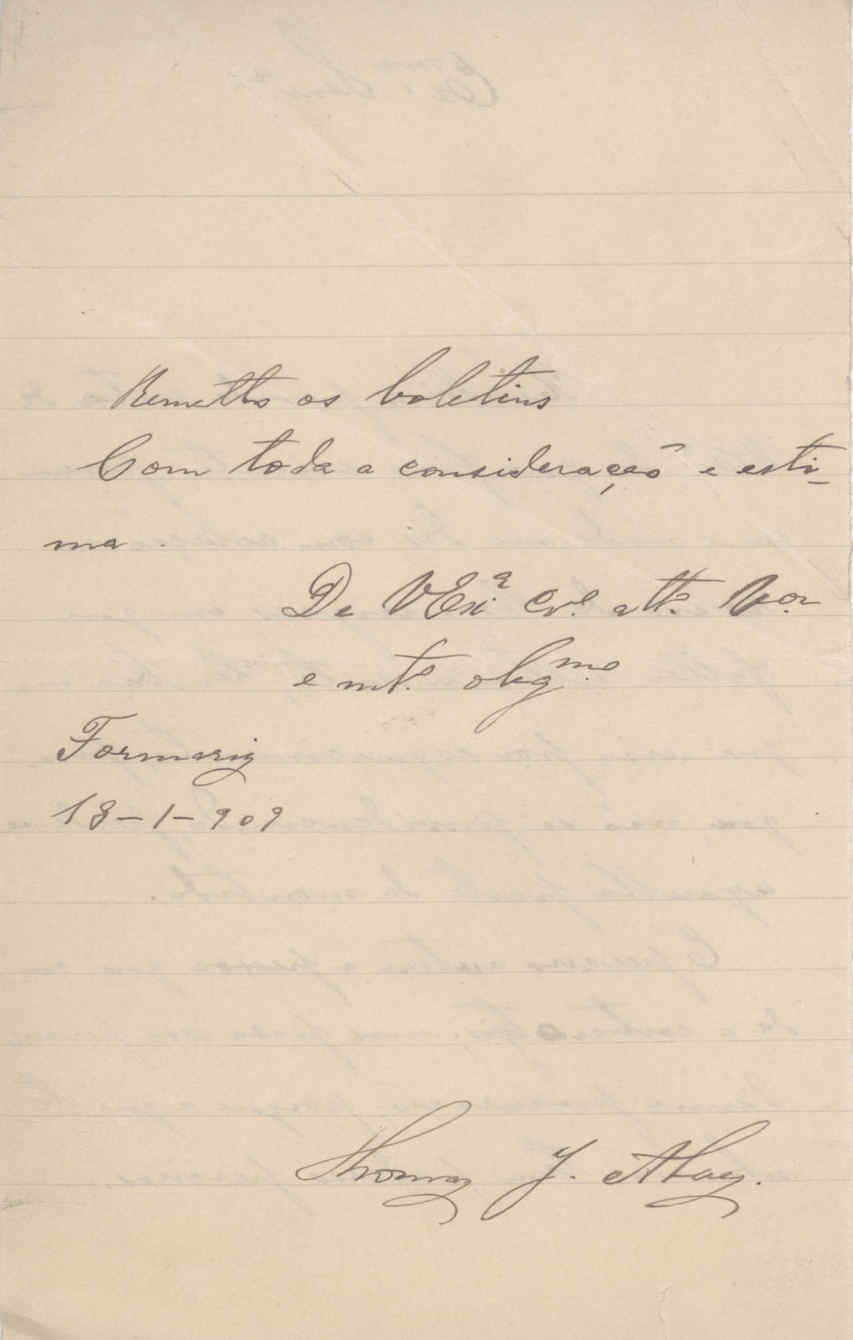 Remetto os boletins
Com toda a consideração e esti-
ma.
De VExª cr.º att.º V.or
e mt.º obg.mo
Formariz
13-1-909
Thomaz J.